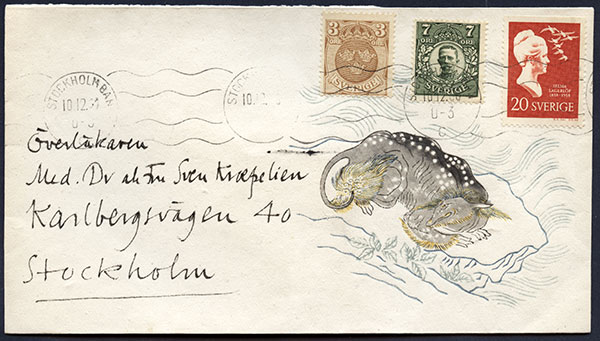 3 3
ÖRE ÖRE
SVERIGE
7 7
ÖRE ÖRE
SVERIGE
SELMA
LAGERLÖF
1858-1958
20 SVERIGE
STOCKHOLM BAN
10.12.
0-3
STOCKHOLM
10.12.
10.12.
0-3
C
Överläkaren
Med. Dr Sven Kræpelien
Karlbergsvägen 40
Stockholm